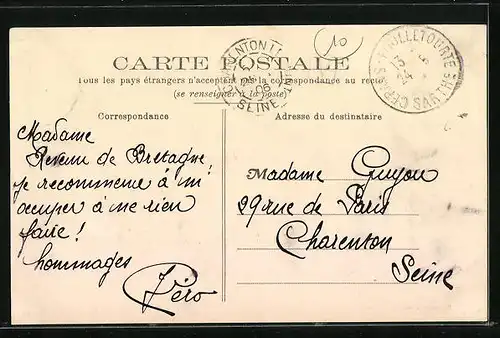 CARTE POSTALE
Tous les pays étrangers n'acceptent pas la correspondance au recto
(se renseigner à la poste)
Correspondance
Adresse du destinataire
Madame
Revenu de Bretagne,
je recommence à m'
occuper à ne rien
faire!
hommages
Madame Guyou
29 rue de Paris
Charenton
Seine
SEINE
SARTHE
10